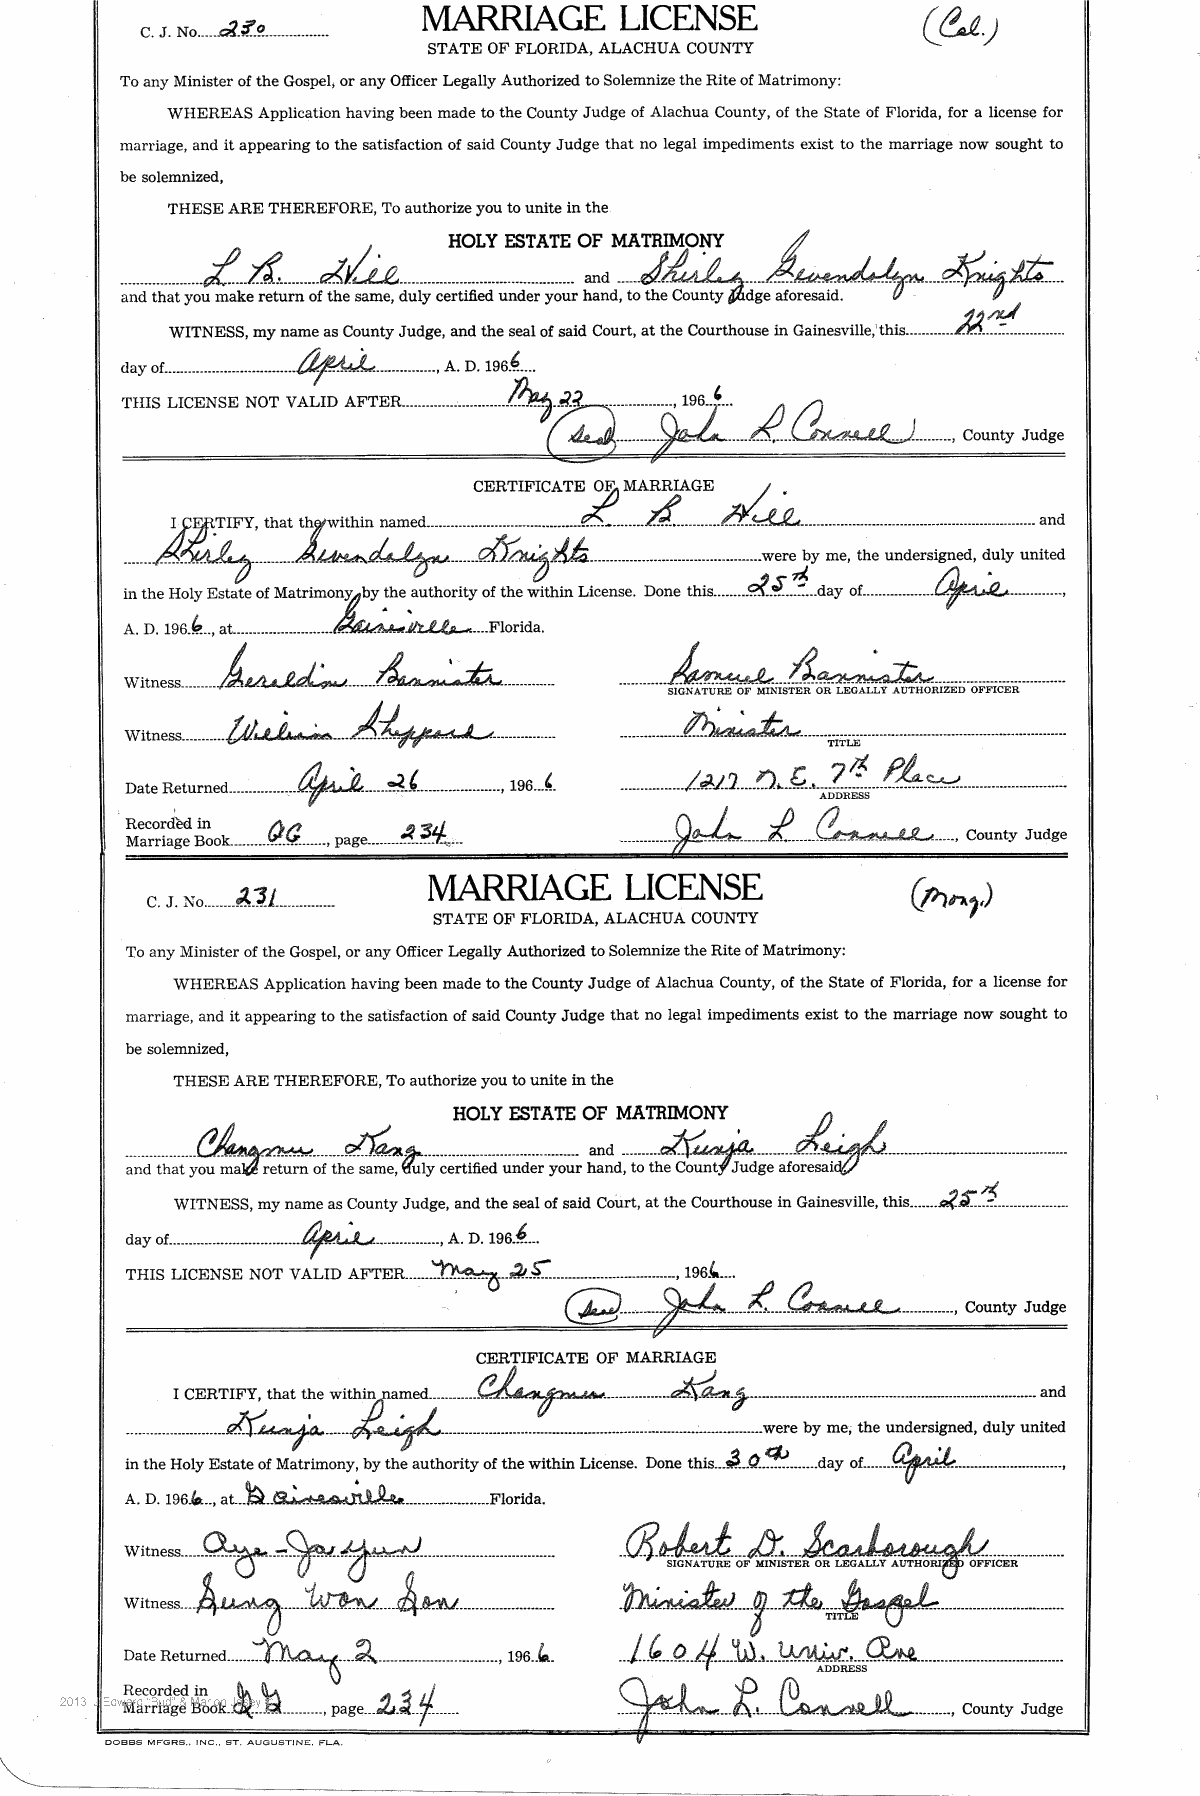 C. J. No. 230 MARRIAGE LICENSE (Col.)
STATE OF FLORIDA, ALACHUA COUNTY
To any Minister of the Gospel, or any Officer Legally Authorized to Solemnize the Rite of Matrimony:
WHEREAS Application having been made to the County Judge of Alachua County, of the State of Florida, for a license for
marriage, and it appearing to the satisfaction of said County Judge that no legal impediments exist to the marriage now sought to
be solemnized,
THESE ARE THEREFORE, To authorize you to unite in the
HOLY ESTATE OF MATRIMONY
L. B. Hill and Shirley Gevendolyn Knights
and that you make return of the same, duly certified under your hand, to the County Judge aforesaid.
WITNESS, my name as County Judge, and the seal of said Court, at the Courthouse in Gainesville, this 22nd
day of April, A. D. 1966
THIS LICENSE NOT VALID AFTER May 22, 1966
(Seal) John L. Connell, County Judge
CERTIFICATE OF MARRIAGE
I CERTIFY, that the within named L. B. Hill and
Shirley Gevendolyn Knights were by me, the undersigned, duly united
in the Holy Estate of Matrimony, by the authority of the within License. Done this 25th day of April,
A. D. 1966, at Gainesville Florida.
Witness Geraldin Bannister Samuel Bannister
SIGNATURE OF MINISTER OR LEGALLY AUTHORIZED OFFICER
Witness William Sheppard Minister
TITLE
Date Returned April 26, 1966 1217 N. E. 7th Place
ADDRESS
Recorded in
Marriage Book GG, page 234 John L Connell, County Judge
C. J. No. 231 MARRIAGE LICENSE (Mong.)
STATE OF FLORIDA, ALACHUA COUNTY
To any Minister of the Gospel, or any Officer Legally Authorized to Solemnize the Rite of Matrimony:
WHEREAS Application having been made to the County Judge of Alachua County, of the State of Florida, for a license for
marriage, and it appearing to the satisfaction of said County Judge that no legal impediments exist to the marriage now sought to
be solemnized,
THESE ARE THEREFORE, To authorize you to unite in the
HOLY ESTATE OF MATRIMONY
Changmu Kang and Kunja Leigh
and that you make return of the same, duly certified under your hand, to the County Judge aforesaid.
WITNESS, my name as County Judge, and the seal of said Court, at the Courthouse in Gainesville, this 25th
day of April, A. D. 1966
THIS LICENSE NOT VALID AFTER May 25, 1966
(Seal) John L. Connell, County Judge
CERTIFICATE OF MARRIAGE
I CERTIFY, that the within named Changmu Kang and
Kunja Leigh were by me, the undersigned, duly united
in the Holy Estate of Matrimony, by the authority of the within License. Done this 30th day of April,
A. D. 1966, at Gainesville Florida.
Witness Aye-Ja Yun Robert D. Scarborough
SIGNATURE OF MINISTER OR LEGALLY AUTHORIZED OFFICER
Witness Sung Won Son Minister of the Gospel
TITLE
Date Returned May 2, 1966 1604 W. Univ. Ave
ADDRESS
Recorded in
Marriage Book GG, page 234 John L. Connell, County Judge
2013 Edward "Bud" &
DOBBS MFGRS., INC., ST. AUGUSTINE, FLA.